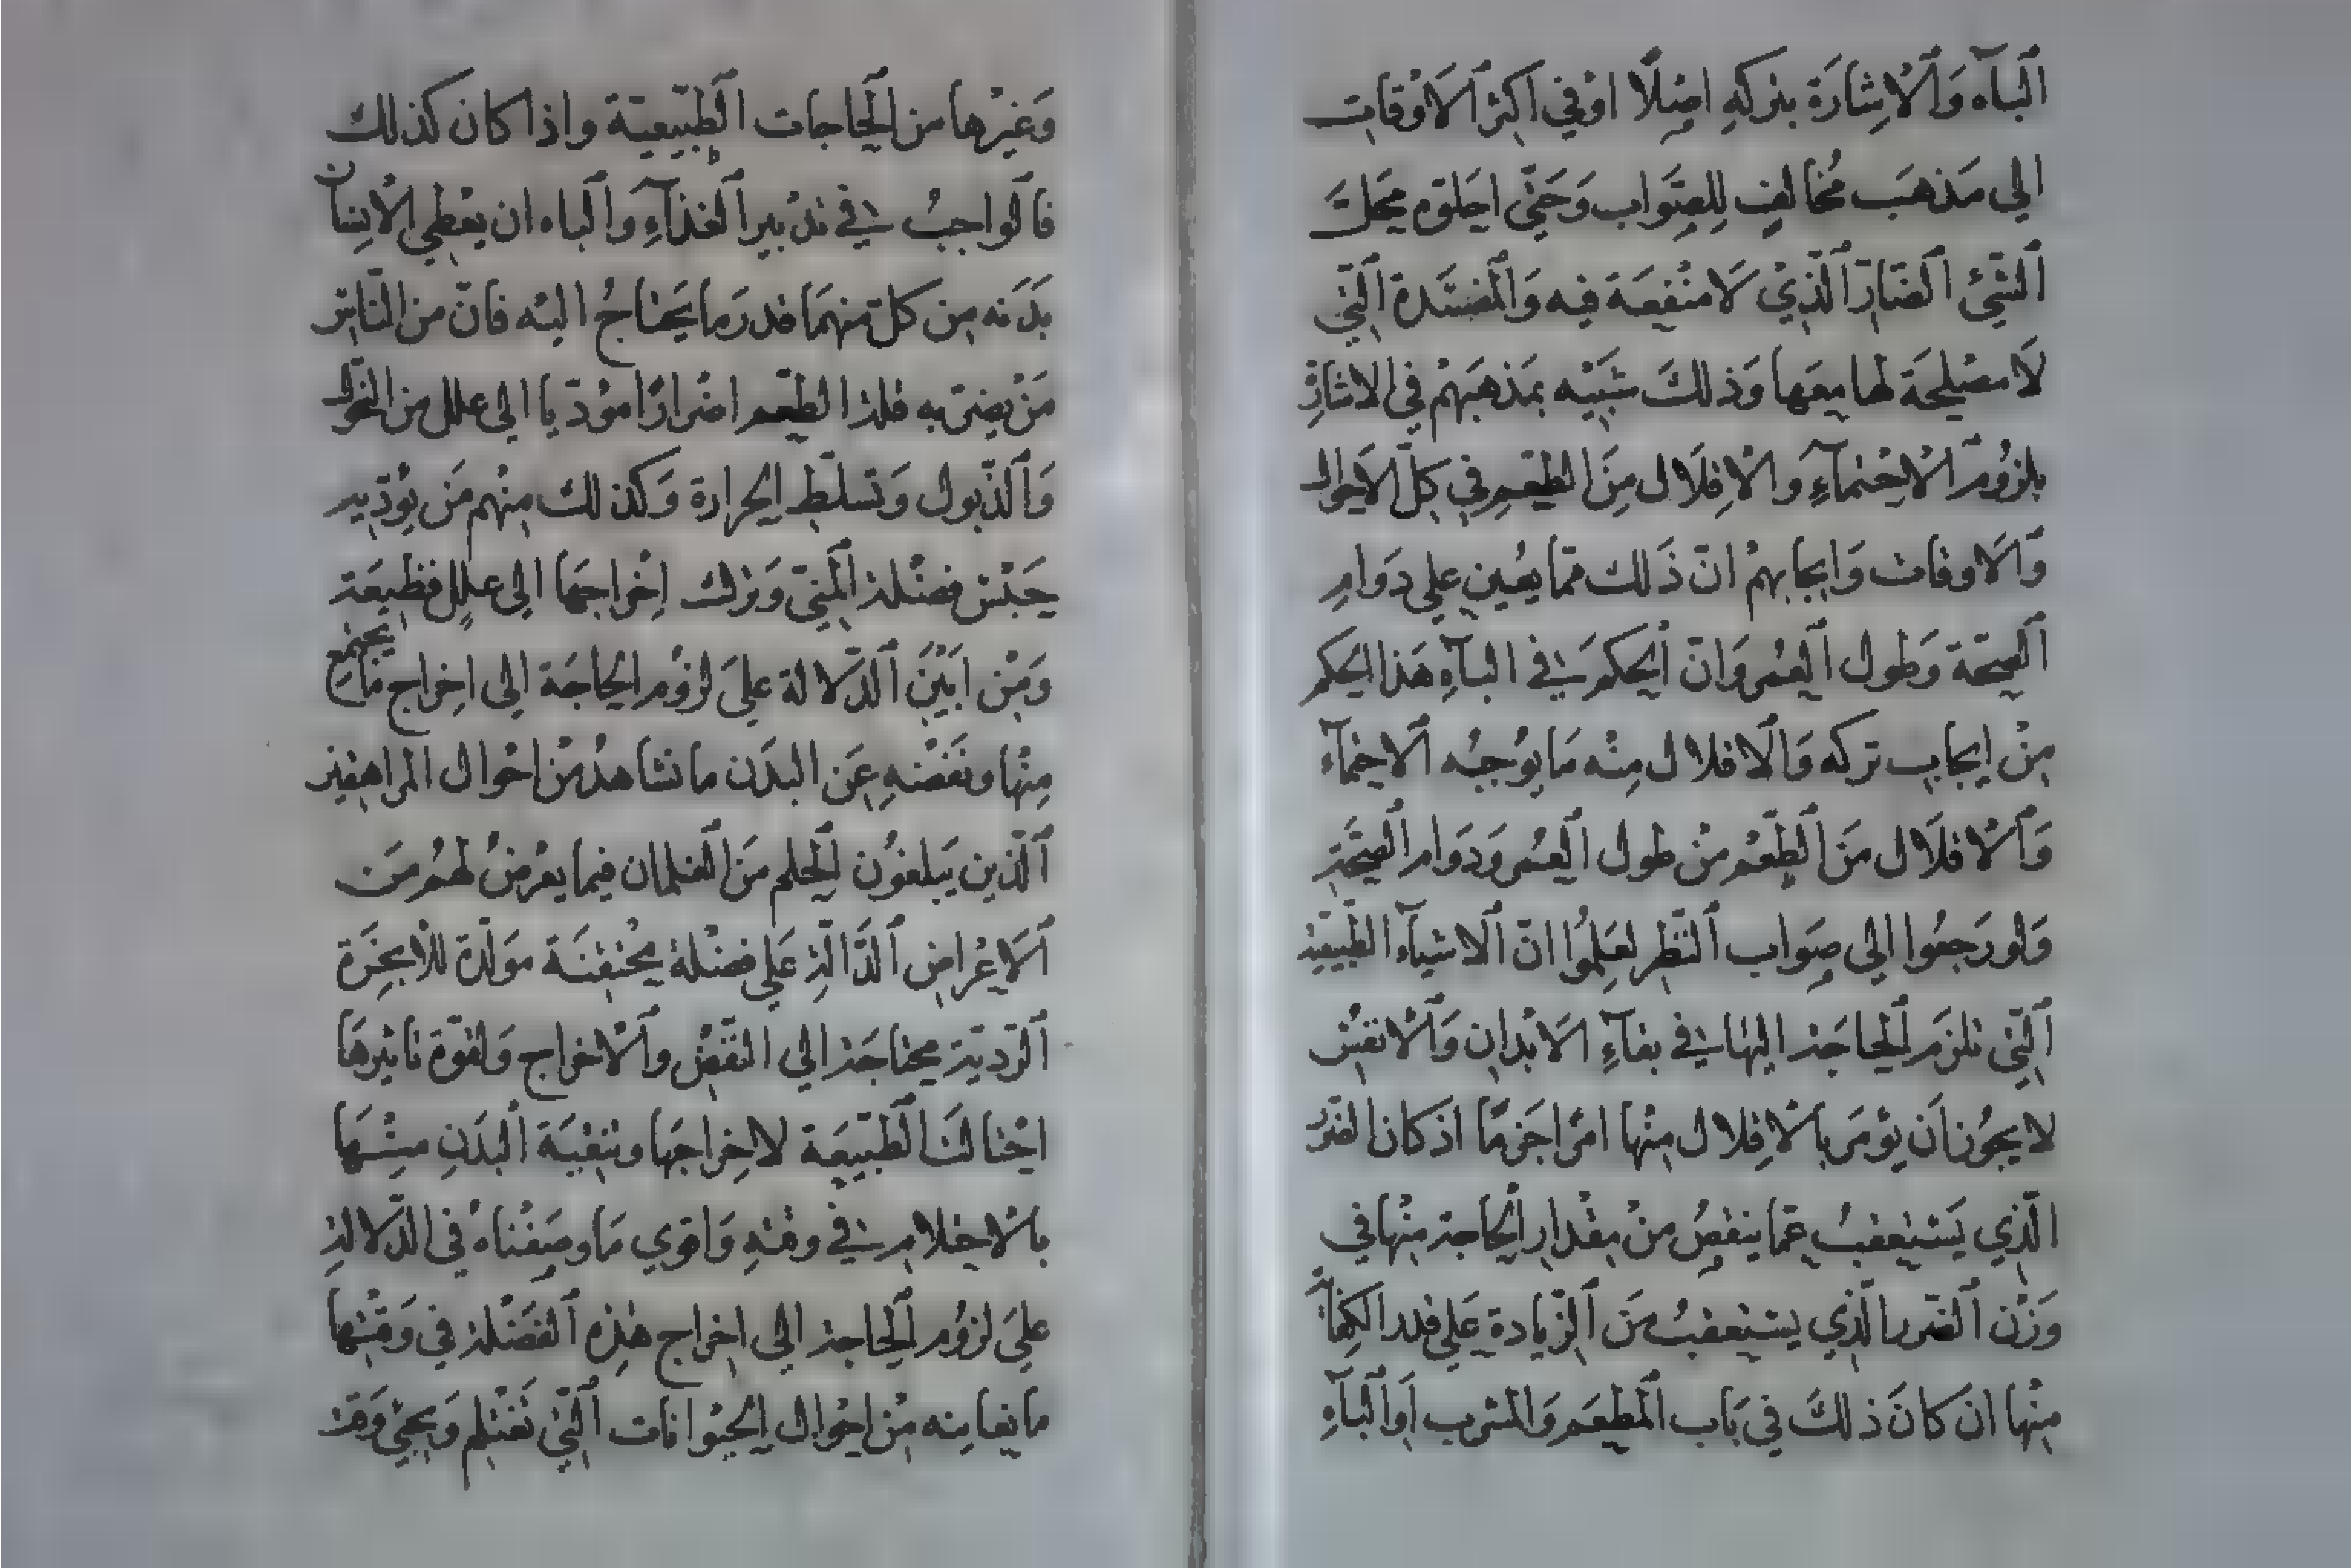 ٱلْبَآه وَٱلْاِشَارَة بتركهِ اصْلًا اوْفي اكثر ٱلَاوْقات
الي مَذهَب مُخَالفٍ لِلصَّواب وَحَتّى احَلّوه مَحَلَّ
ٱلشّيْ ٱلضَّارّ ٱلّذِيْ لَا منْفعَة فيه وَٱلمْفسَدة ٱلتّي
لَا مصْلحَة لها معَها وَذلكَ شَبيْه بمَذهَبهْم في الاشارة
بلزُوْم ٱلاحْتمَآءِ وَالْاِقلَال مِنَ الطعْم في كلّ الاحَوال
وَٱلَاوقات وَايجابهمْ انّ ذَلك ممّا يعُين علي دوَامِ
ٱلصّحّة وَطول ٱلعُمر وَانّ ٱلحكم في البآءِ هَذا الحكم
مِنْ ايجاب تركه وَٱلاقلال مِنْه مَا يوُجبُه ٱلاحتمآء
وَٱلْاقلَال مَن ٱلطّعْم مِنْ طول ٱلعُمر وَدَوَام ٱلصّحَّة
وَلو رَجعُوا الي صَواب ٱلنّظر لعَلِمُوا انّ ٱلاشيآء الطّبيعيّة
ٱلتّي تلزَم ٱلحاجَة اليْها في بقآءِ الَابْدَان وَٱلْانفُس
لا يجوُز اَن يؤْمَر بٱلْاِقلال منْها امْرًا جَزمًا اذ كان الضّرَر
الّذِي يَسْتعقبُ عمّا ينقصُ منْ مقْدار ٱلحاجة منْها في
وَزْن ٱلضّرر الّذِي يستعقبُ مَن ٱلزّيادة عَلي قدر الكفاية
مِنْها انْ كانَ ذلكَ في بَاب ٱلمَطعَم وَالمشرب اَوٱلْبآهِ
وَغيْرها من ٱلحَاجات ٱلطّبيّعيّة واذا كان كذلك
فٱلوَاجبُ في تدْبير ٱلغذآءِ وَٱلْباه ان يعْطي ٱلْانسان
بَدَنه من كلّ منهمَا قدرَ ما يَحْتاجُ اليْه فانّ من النّاس
مَنْ يضرّ به قلة الطعْم اضْرارًا موُدّيا الي علل من النحول
وَٱلذّبول وَتسلّط الحرارة وَكذلك منْهم مَن يؤدّيه
حَبْس فضْلة ٱلمَنيّ وَترك اِخْراجهَا الي عللٍ فظيعَة
وَمِنْ ابَيْنِ ٱلدّلالة عليَ لزوْم الحاجَة الي اخِراج مَا يجتمع
مِنْها ونفَضْهِ عَن البدَن ما نشاهدُ مِنْ احْوال المراهقين
ٱلّذين يَبلغوُن ٱلحلم مَن ٱلغلمان فيما يعْرضُ لهمُ مَن
ٱلَاعْراض ٱلدَّالّة عَلي فضْلة مُحْتقنَة موَلّدة للْابخَرة
ٱلرّديّة محتاجَة الي النّفضْ وٱلْاخراج وَلقوّة تاثيرهَا
احْتالتَ ٱلطّبيعَة لاخِراجَها وتنقيَة ٱلْبدَنِ منْهَا
بٱلْاحتلام في وقتهِ وَاقوي مَا وصَفْناهُ في الدّلالة
عليَ لزوُم ٱلحاجة الي اخراج هٰذِه ٱلفضْلة في وَقتْها
ما يعاينه مِنْ احْوال الحيْوانات ٱلتّي تَغتْلم وَيجيْ وَقت